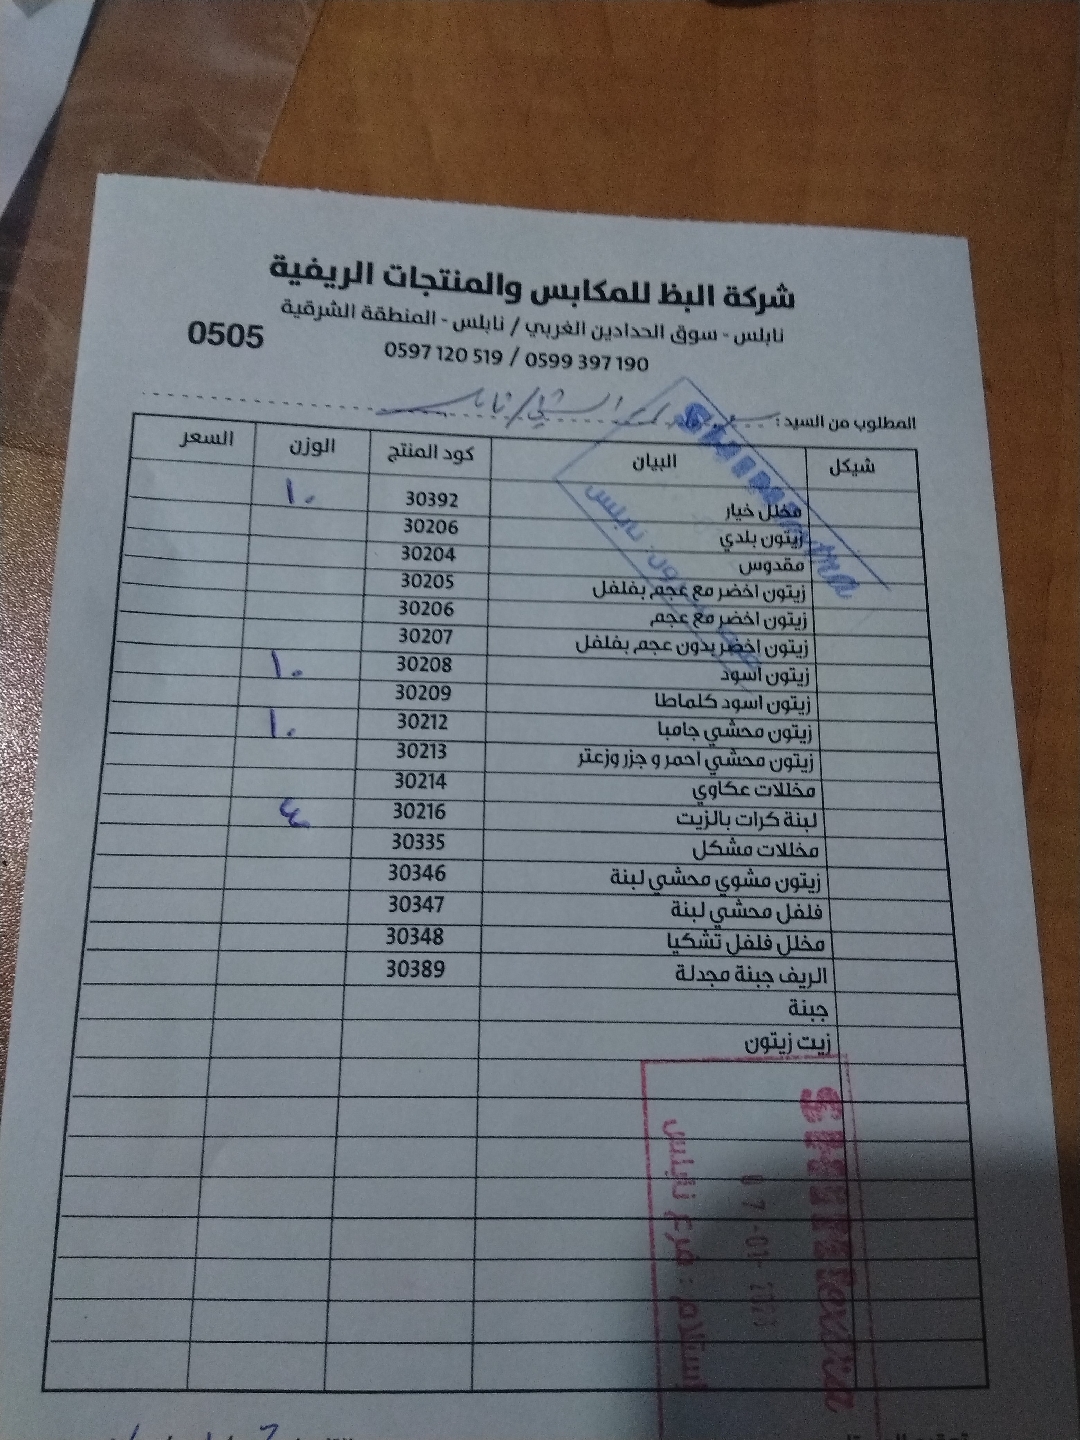 شركة البظ للمكابس والمنتجات الريفية
نابلس - سوق الحدادين الغربي / نابلس - المنطقة الشرقية
0597 120 519 / 0599 397 190
0505
المطلوب من السيد :
شيكل البيان كود المنتج الوزن السعر
مخلل خيار 30392 ١٠
زيتون بلدي 30206
مقدوس 30204
زيتون اخضر مع عجم بفلفل 30205
زيتون اخضر مع عجم 30206
زيتون اخضر بدون عجم بفلفل 30207
زيتون اسود 30208 ١٠
زيتون اسود كلماطا 30209
زيتون محشي جامبا 30212 ١٠
زيتون محشي احمر و جزر وزعتر 30213
مخللات عكاوي 30214
لبنة كرات بالزيت 30216
مخللات مشكل 30335
زيتون مشوي محشي لبنة 30346
فلفل محشي لبنة 30347
مخلل فلفل تشكيا 30348
الريف جبنة مجدلة 30389
جبنة
زيت زيتون
استلام : فرع نابلس